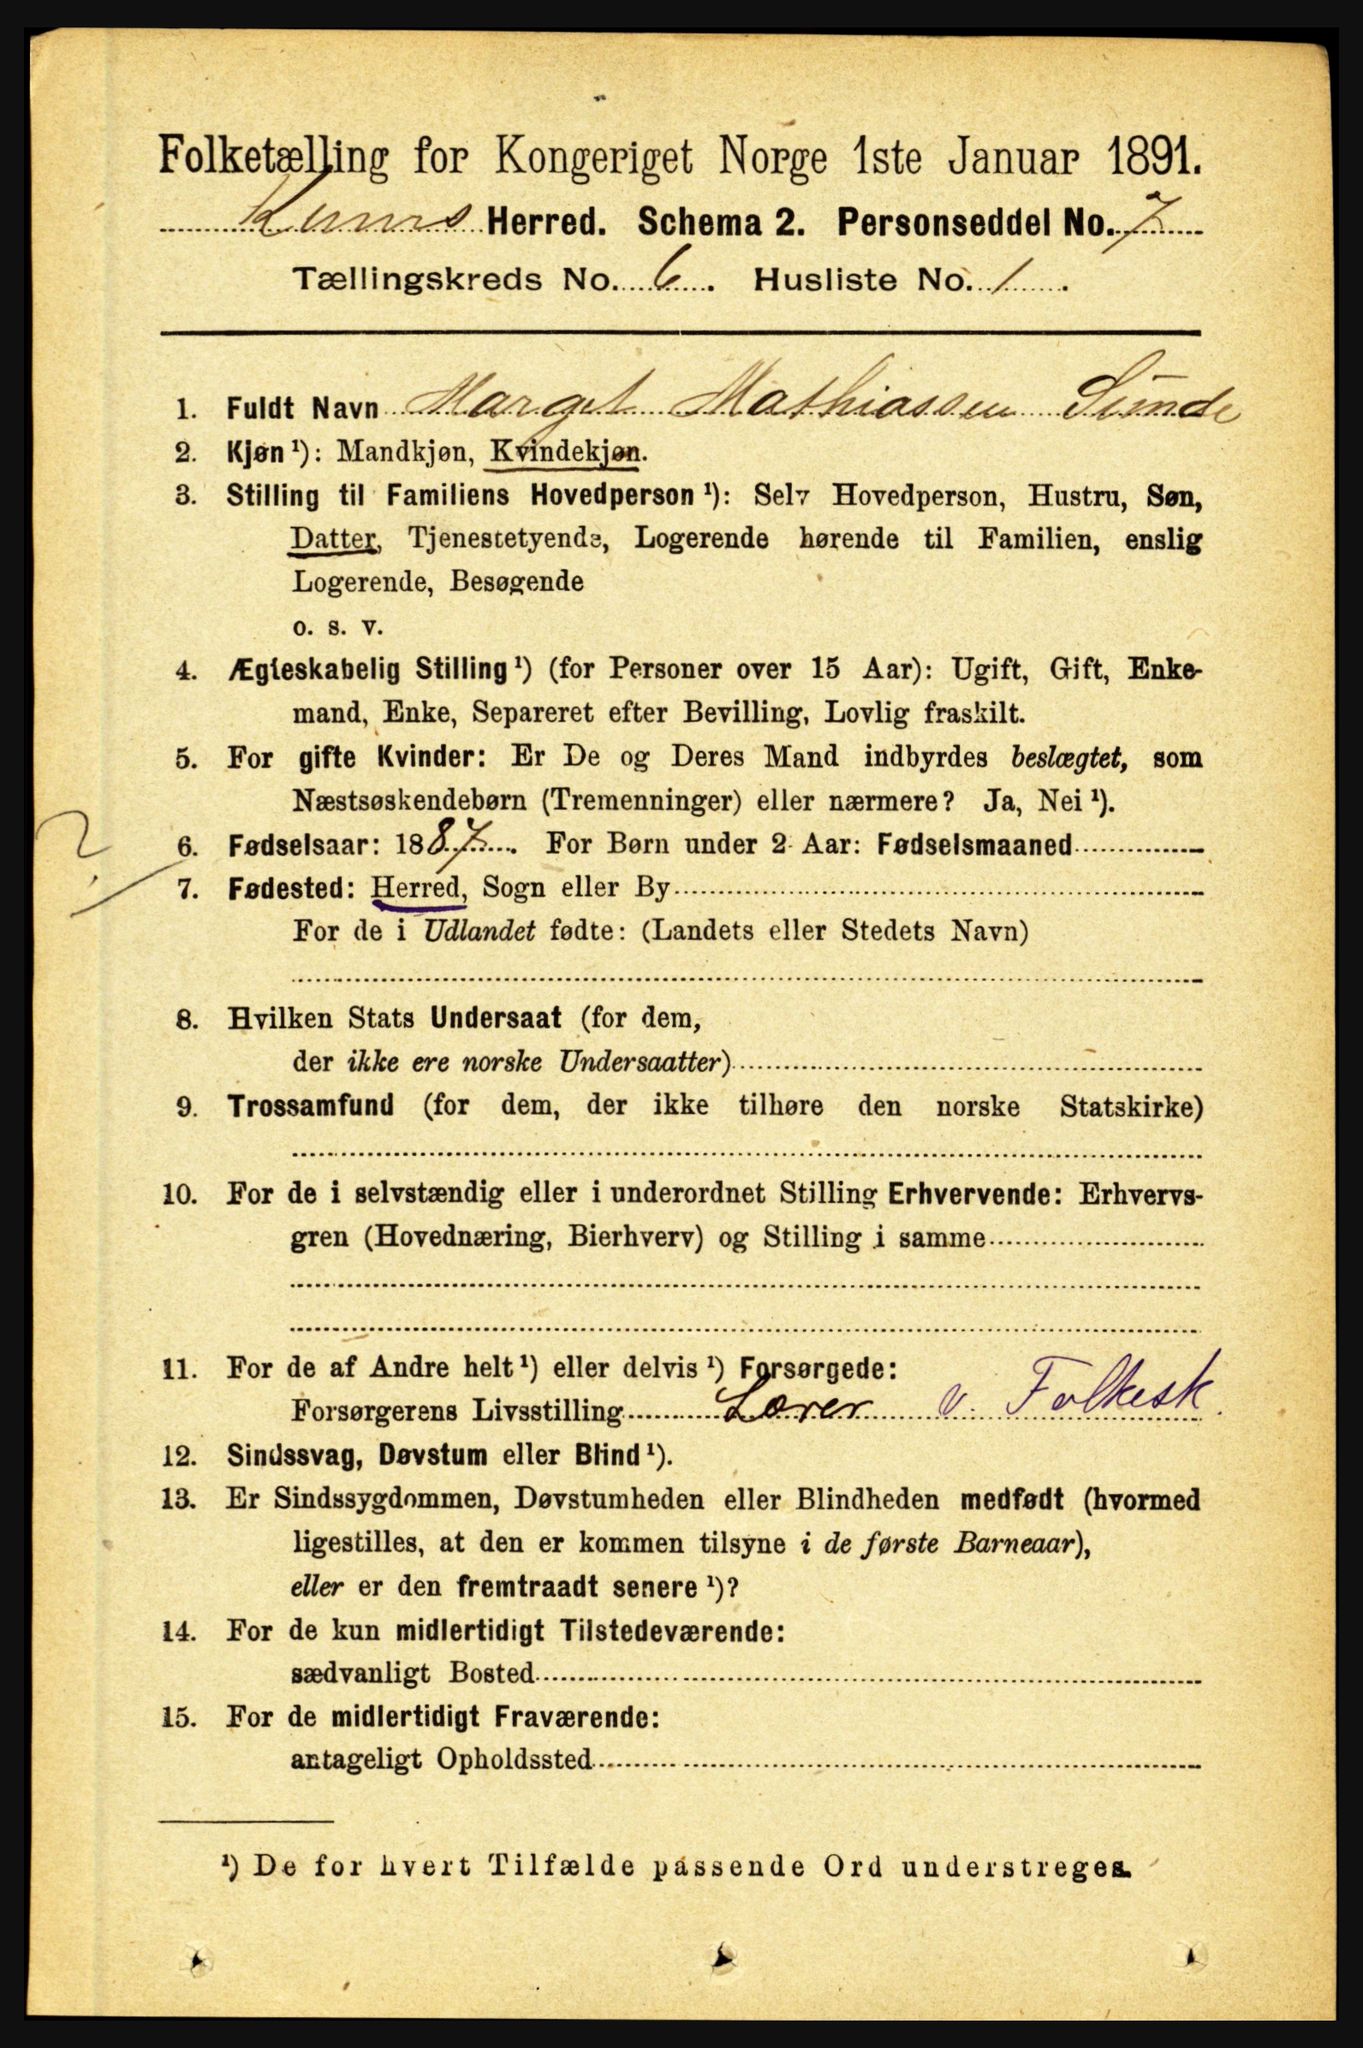 Folketælling for Kongeriget Norge 1ste Januar 1891.
Kinns Herred. Schema 2. Personseddel No. 7
Tællingskreds No. 6. Husliste No. 1.
1. Fuldt Navn Marget Mathiassen Sunde
2. Kjøn ¹): Mandkjøn, Kvindekjøn.
3. Stilling til Familiens Hovedperson ¹): Selv Hovedperson, Hustru, Søn,
Datter, Tjenestetyende, Logerende hørende til Familien, enslig
Logerende, Besøgende
o. s. v.
4. Ægteskabelig Stilling ¹) (for Personer over 15 Aar): Ugift, Gift, Enke-
mand, Enke, Separeret efter Bevilling, Lovlig fraskilt.
5. For gifte Kvinder: Er De og Deres Mand indbyrdes beslægtet, som
Næstsøskendebørn (Tremenninger) eller nærmere? Ja, Nei ¹).
?
6. Fødselsaar: 1887. For Børn under 2 Aar: Fødselsmaaned
7. Fødested: Herred, Sogn eller By
For de i Udlandet fødte: (Landets eller Stedets Navn)
8. Hvilken Stats Undersaat (for dem,
der ikke ere norske Undersaatter)
9. Trossamfund (for dem, der ikke tilhøre den norske Statskirke)
10. For de i selvstændig eller i underordnet Stilling Erhvervende: Erhvervs-
gren (Hovednæring, Bierhverv) og Stilling i samme
11. For de af Andre helt ¹) eller delvis ¹) Forsørgede:
Forsørgerens Livsstilling Lærer v. Folkesk.
12. Sindssvag, Døvstum eller Blind ¹).
13. Er Sindssygdommen, Døvstumheden eller Blindheden medfødt (hvormed
ligestilles, at den er kommen tilsyne i de første Barneaar),
eller er den fremtraadt senere ¹)?
14. For de kun midlertidigt Tilstedeværende:
sædvanligt Bosted
15. For de midlertidigt Fraværende:
antageligt Opholdssted
¹) De for hvert Tilfælde passende Ord understreges.